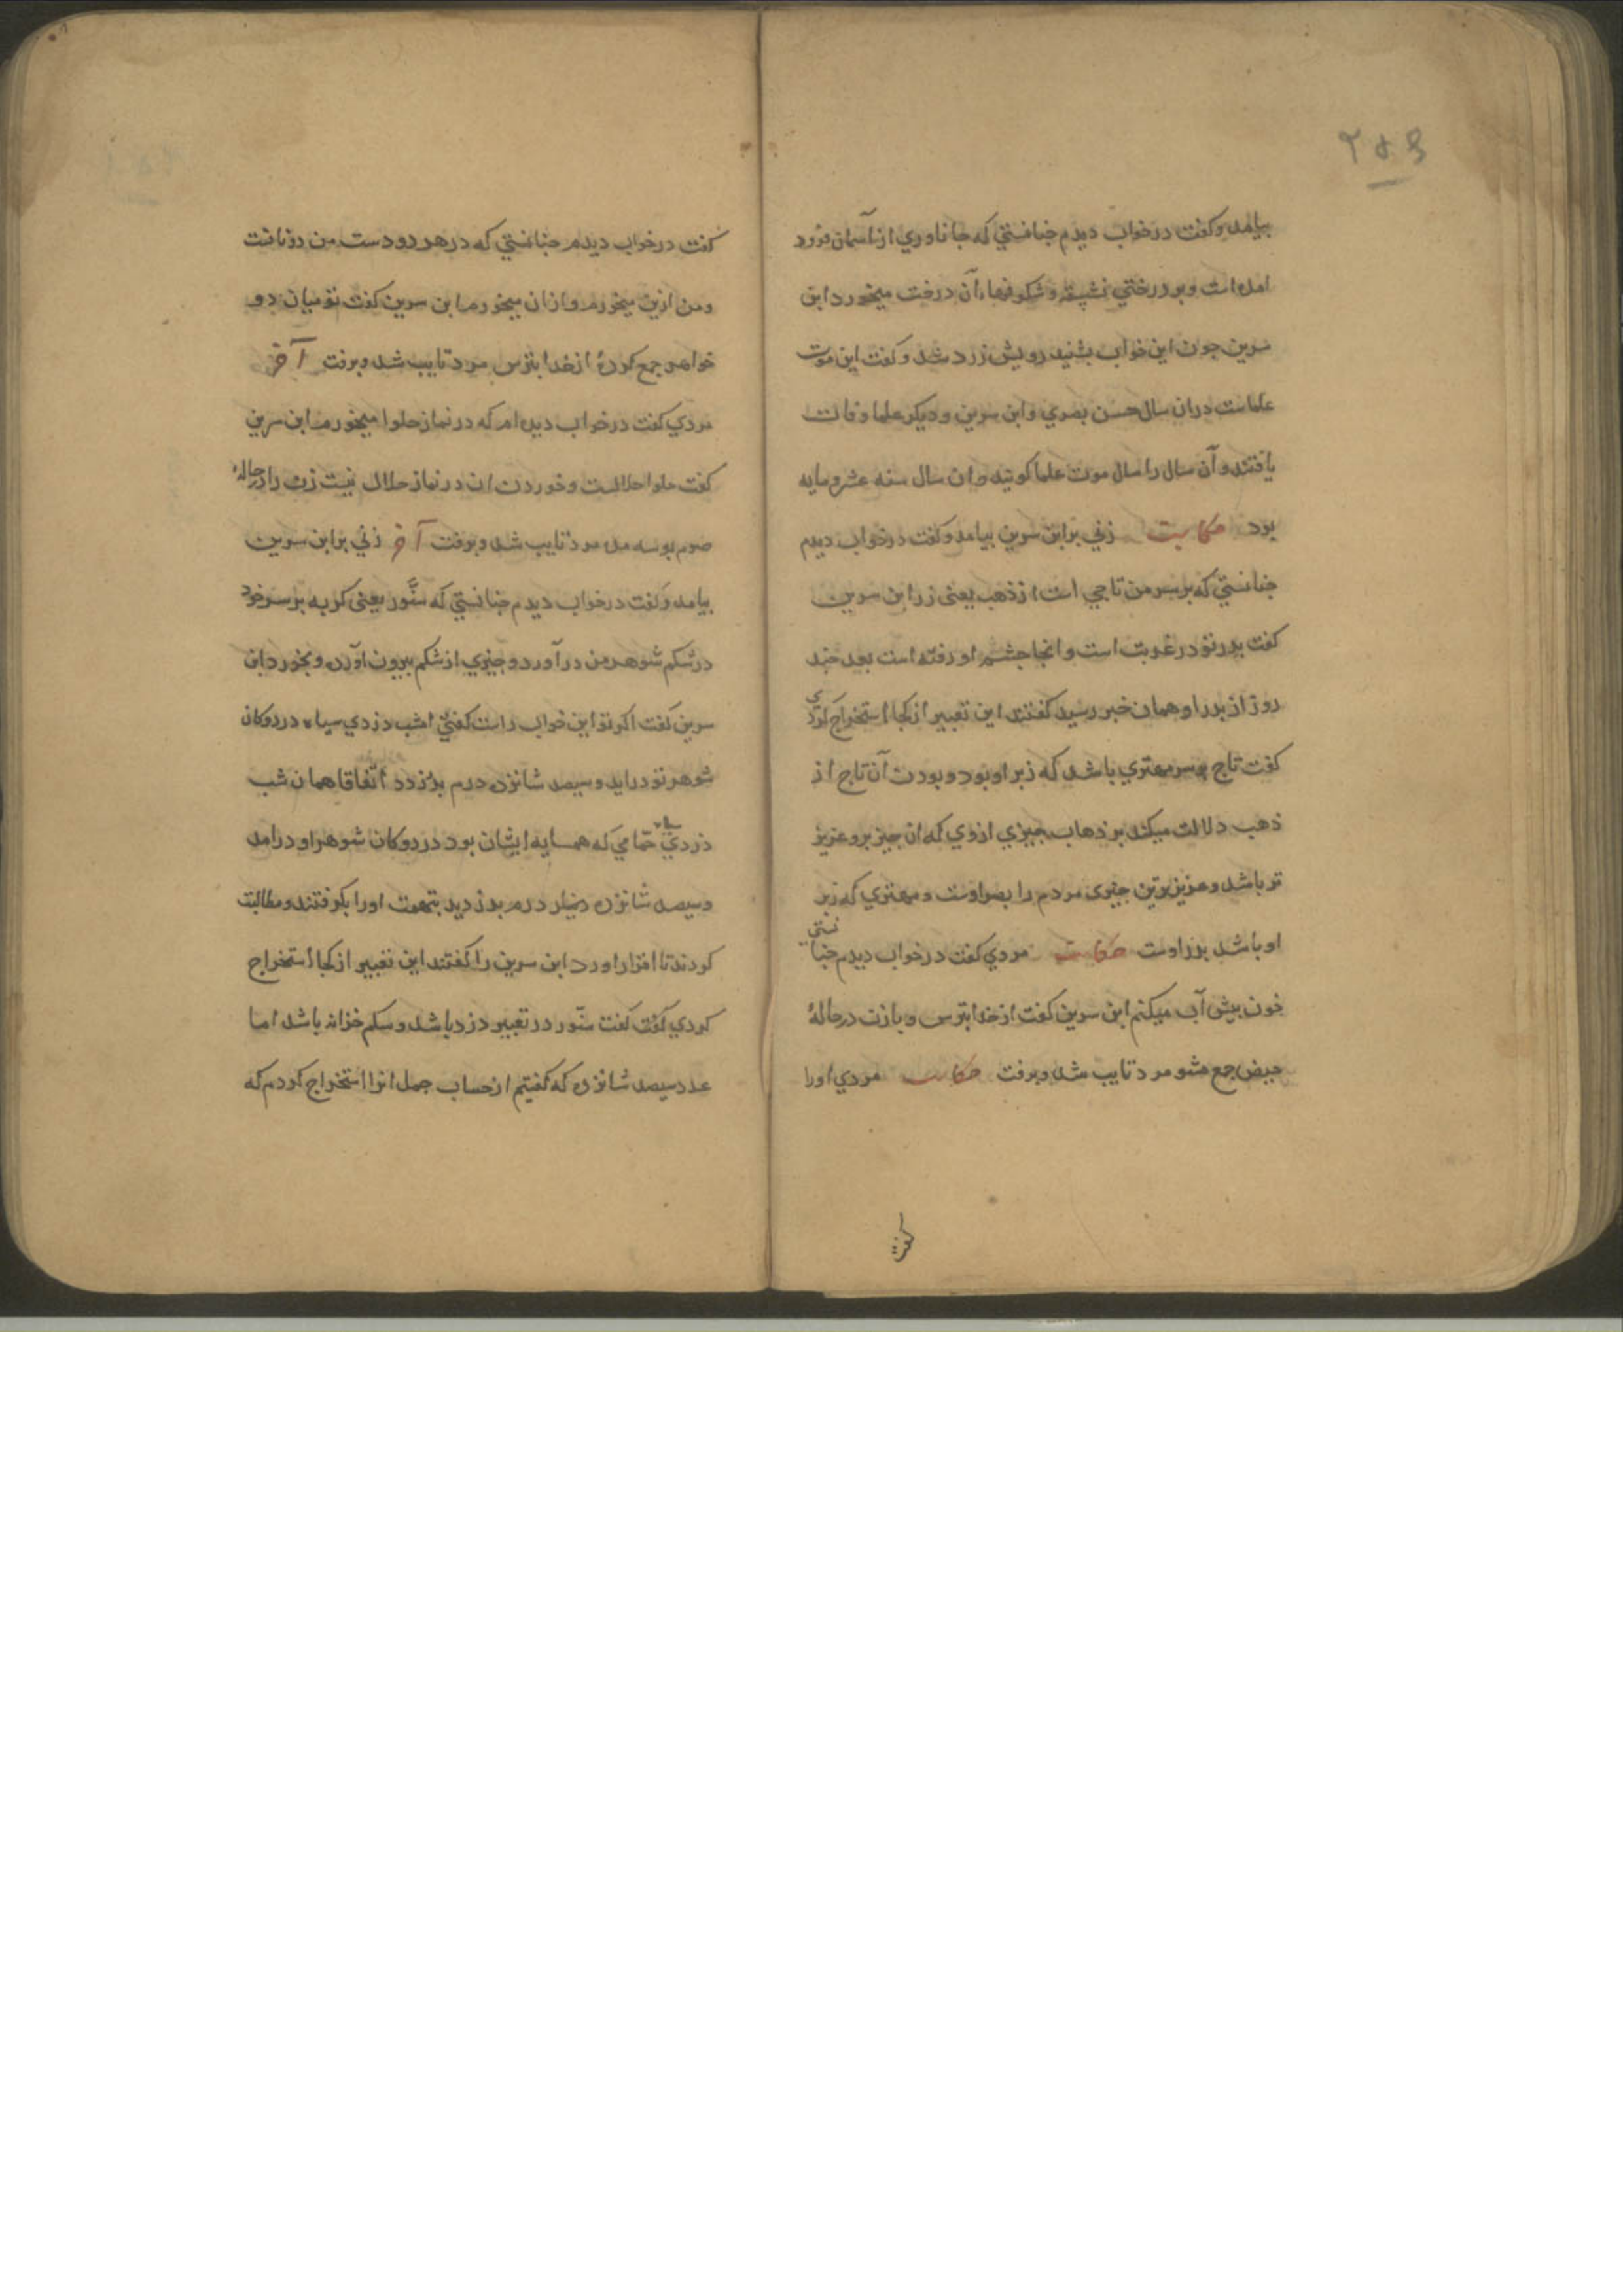 ۲۵۶
بیامد و کفت در خواب دیدم جنانستي که جاناوري از آسمان فرود
امده است و بر درختي نشسته و شکوفهاء آن درخت میخورد ابن
سرین جون این خواب بشنید رویش زرد شد و کفت این موت
علماست دران سال حسن بصري و ابن سرین و دیکر علما وفات
یافتند و آن سال را سال موت علما کویند و ان سال سنه عشر و مایه
بود حکایت زني بر ابن سرین بیامد و کفت در خواب دیدم
جنانستي که بر سر من تاجي است از ذهب یعنی زر ابن سرین
کفت بدر تو در غربت است و انجا جشم او رفته است بعد جند
روز از بدر او همان خبر رسید کفتند این تعبیر از کجا استخراج کردي
کفت تاج بر سر مهتري باشد که زبر او بود و بودن آن تاج از
ذهب دلالت میکند بر ذهاب جیزي ازوي که ان جیز برو عزیز
تر باشد و عزیزترین جیزی مردم را بصر اوست و مهتري که زبر
او باشد بدر اوست حکایت مردي کفت در خواب دیدم جنانستي
خون بیش آب میکنم ابن سرین کفت از خدا بترس و با زن در حالهٔ
حیض جمع مشو مرد تایب شد و برفت حکایت مردي اورا
کفت
کفت در خواب دیدم جنانستي که در هر دو دست من دو نانست
و من ازین میخورم و از ان میخورم ابن سرین کفت تو میان دو
خواهر جمع کردهٔ از خدا بترس مرد تایب شد و برفت آخر
مردي کفت در خواب دیده ام که در نماز حلوا میخورم ابن سرین
کفت حلوا حلالست و خوردن ان در نماز حلال نیست زن را در حالهٔ
صوم بوسه مده مرد تایب شد و برفت آخر زني بر ابن سرین
بیامد و کفت در خواب دیدم جنانستي که سنّور یعنی کربه بر سر خود
در شکم شوهر من در آورد و جیزي از شکم بیرون آورد و بخورد ابن
سرین کفت اکر تو این خواب راست کفتي امشب دزدي سیاه در دوکان
شوهر تو دراید و سیصد شانزده درم بدزدد اتّفاقا همان شب
دزدي سیاه حمّامي که همسایه ایشان بود در دوکان شوهر او درامد
و سیصد شانزده درم بدزدید بتهمت اورا بکرفتند و مطالبت
کردند تا اقرار اورد ابن سرین را کفتند این تعبیر از کجا استخراج
کردي کفت سنّور در تعبیر دزد باشد و شکم خزانه باشد اما
عدد سیصد شانزده که کفتیم از حساب جمل انرا استخراج کردم که